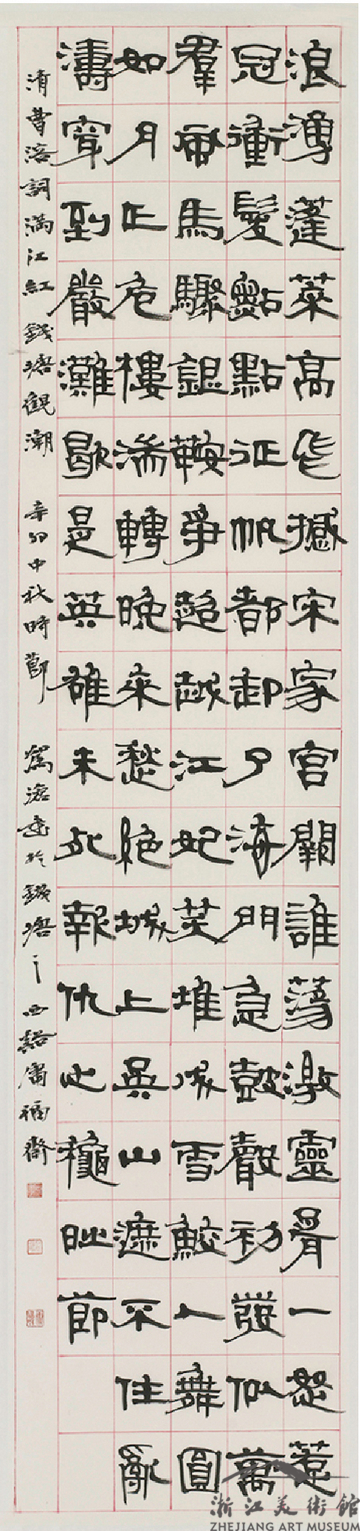 浪湧蓬萊高飛撼宋家宮闕誰蕩激靈胥一怒惹
冠衝髮點點征帆都卸了海門急鼓聲初發似萬
羣風馬驟銀鞍爭超越江妃笑堆成雪鮫人舞圓
如月正危樓湍轉晚來愁絕城上吳山遮不住亂
濤穿到嚴灘歇是英雄未死報仇心穐時節
清曹溶詞滿江紅錢塘觀潮 辛卯中秋時節 於錢塘之西谿
浙江美術館
ZHEJIANG ART MUSEUM